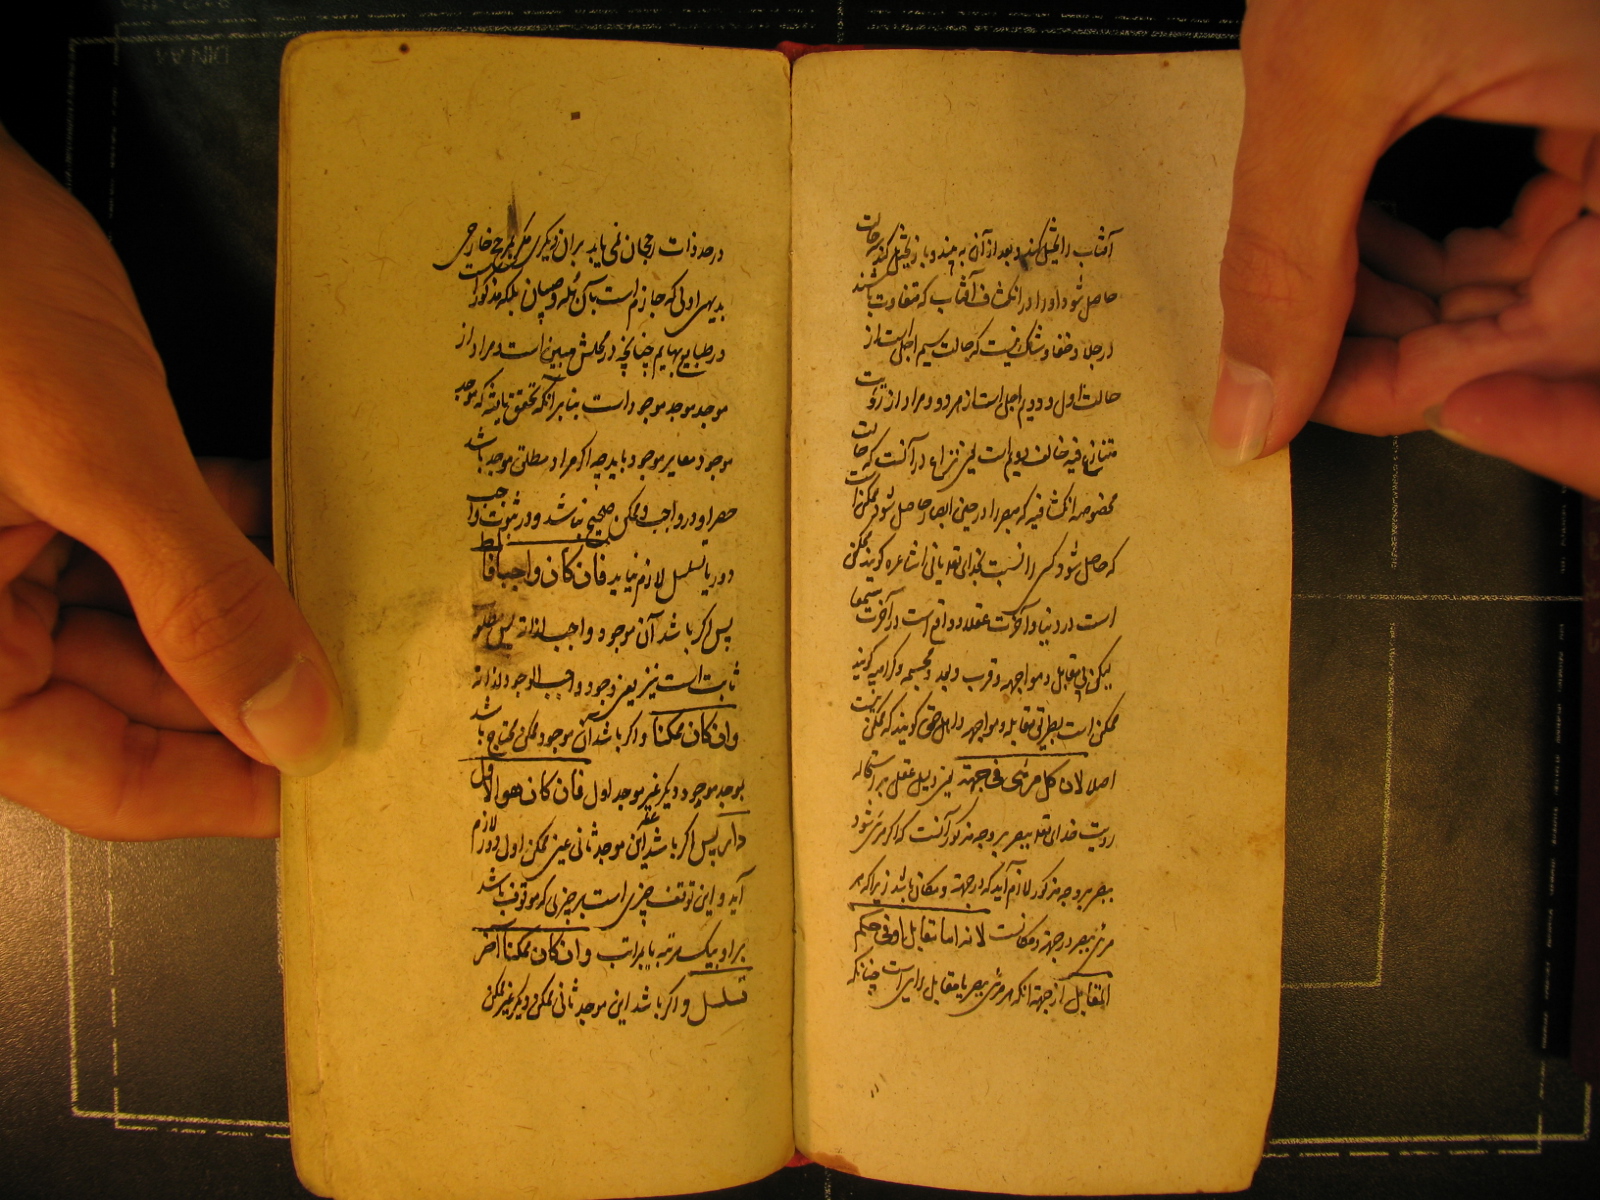 آفتاب را تخیل کند و بعد از آن به بیند و باز تخیل کند سه حالت
حاصل شود او را در انکشاف آفتاب که متفاوت باشند
در جلا و خفا و شک نیست که حالت سیم اجلی است از
حالت اول و دویم اجلی است از هر دو و مراد از رؤیت
متنازع فیه حالت دویم است یعنی نزاع در آنست که حالت
مخصوصه انکشافیه که مبصر را در حین ابصار حاصل شود ممکن است
که حاصل شود کسی را نسبت بخدای تعالی یا نی اشاعره گویند ممکن
است در دنیا و آخرت عقلا و واقع است در آخرت سمعا
لیکن بی مقابله و مواجهه و قرب و بعد و مجسمه و کرامیه گویند
ممکن است بطریق مقابله و مواجهه و اهل حق گویند که ممکن نیست
اصلا لان کل مرئی فی جهة یعنی دلیل عقلی بر استحاله
رویت خدای تعالی ببصر بر وجه مذکور آنست که اگر مرئی شود
ببصر بر وجه مذکور لازم آید که در جهة و مکان باشد زیرا که هر
مرئی ببصر در جهة و مکانست لانه اما مقابل او فی حکم
المقابل از جهة آنکه هر مرئی ببصر یا مقابل رایی است چنانکه
در حد ذات رجحان نمی یابد بر آن دیگری مگر بمرجح خارجی
بدیهی اولی که جازم است بآن بله و صبیان بلکه مذکور است
در طبایع بهایم چنانچه در محلش مبین است و مراد از
موجد موجد موجود است بنا بر آنکه تحقق یافته که موجد
موجود مغایر موجود باید چه اگر مراد مطلق موجد باشد
حصر او در واجب و ممکن صحیح نباشد و در ثبوت واجب
دور یا تسلسل لازم نیاید فان کان واجبا فالمط
پس اگر باشد آن موجود واجب لذاته پس مطلوب
ثابت است نیز یعنی وجود واجب الوجود لذاته
وان کان ممکنا و اگر باشد آن موجود ممکن محتاج باشد
بوجد موجود دیگر غیر موجد اول فان کان هو الاول
دار پس اگر باشد این موجد ثانی عین ممکن اول دور لازم
آید و این توقف چیزی است بر چیزی که موقوف باشد
بر او بیک مرتبه یا بمراتب وان کان ممکنا آخر
تسلسل و اگر باشد این موجد ثانی ممکن دیگر غیر ممکن